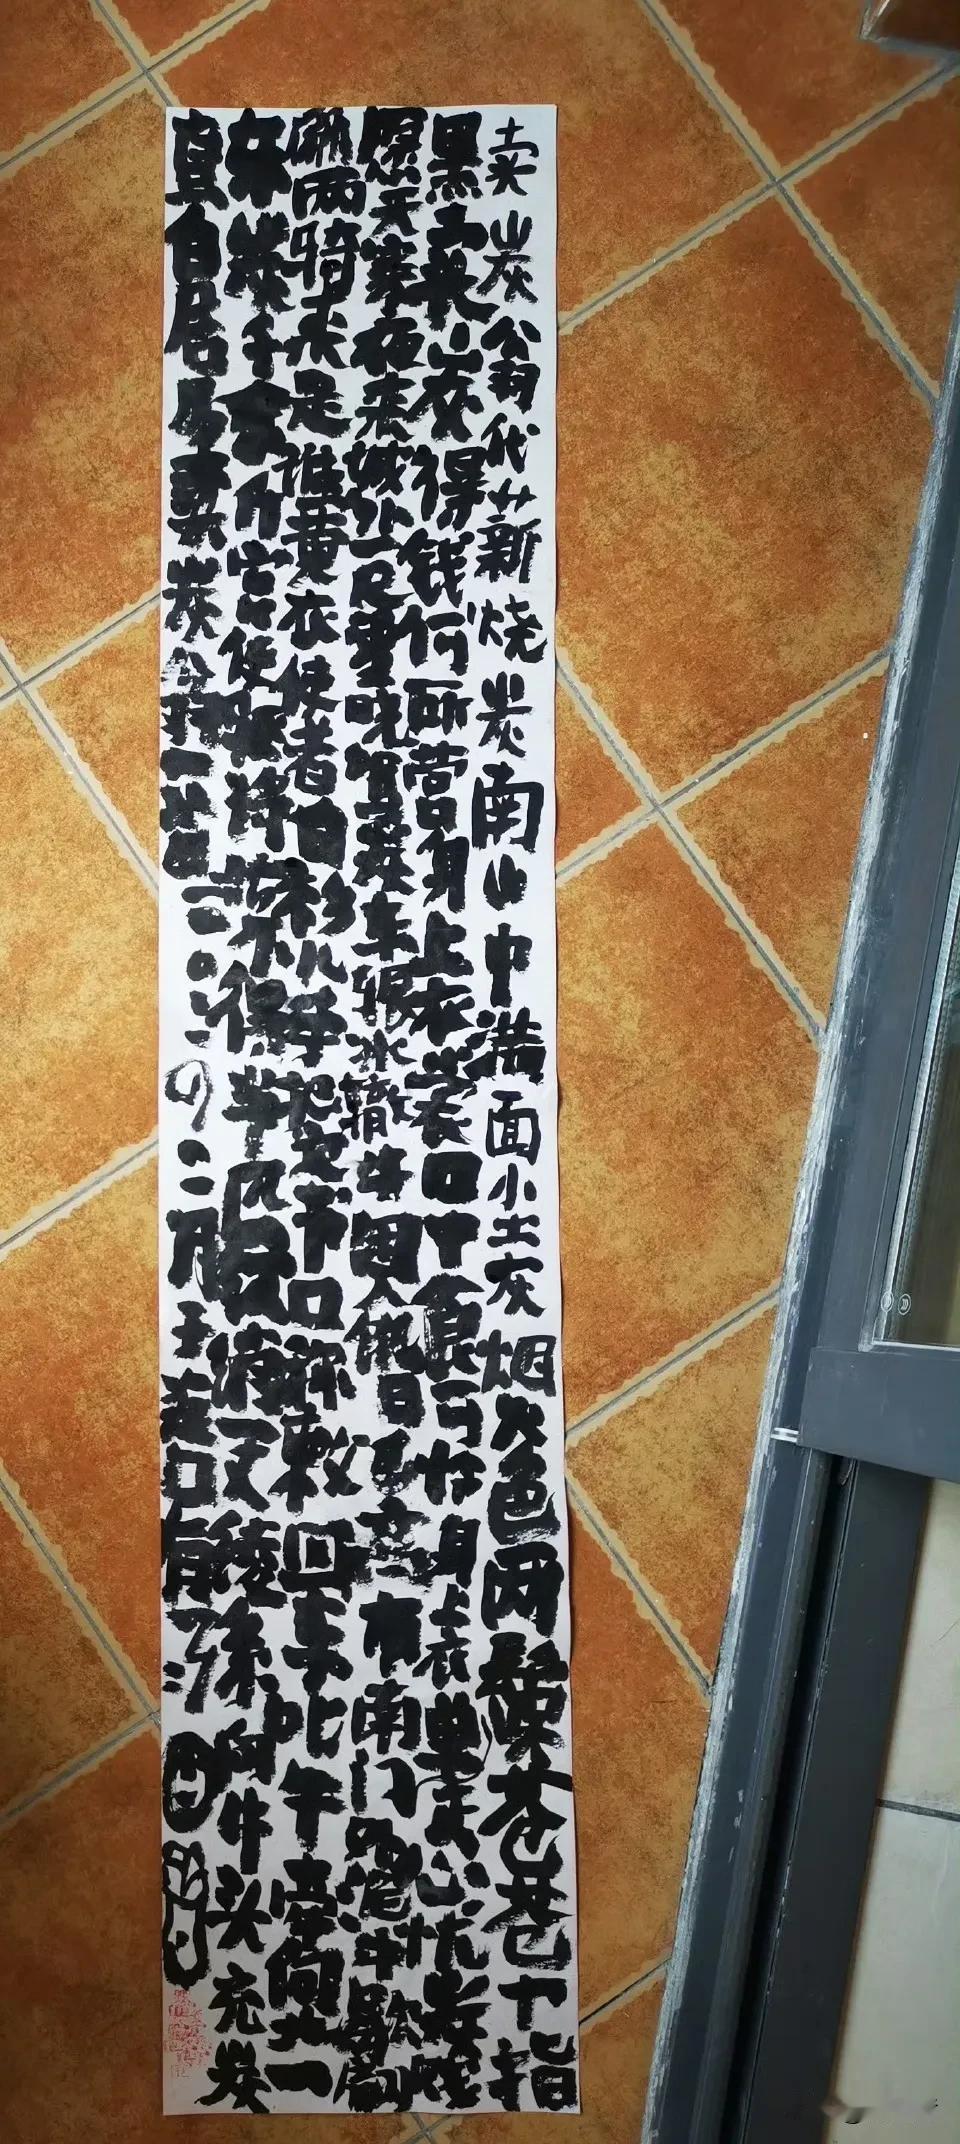 卖炭翁伐薪烧炭南山中满面尘灰烟火色两鬓苍苍十指
黑卖炭得钱何所营身上衣裳口中食可怜身上衣单心忧炭贱
愿天寒夜来城外一尺雪晓驾炭车辗冰辙牛困人饥日已高市南门外泥中歇翩
翩两骑来是谁黄衣使者白衫儿手把文书口称敕回车叱牛牵向北一
车炭千余斤宫使驱将惜不得半匹红绡一丈绫系向牛头充炭
直白居易卖炭翁一二月于